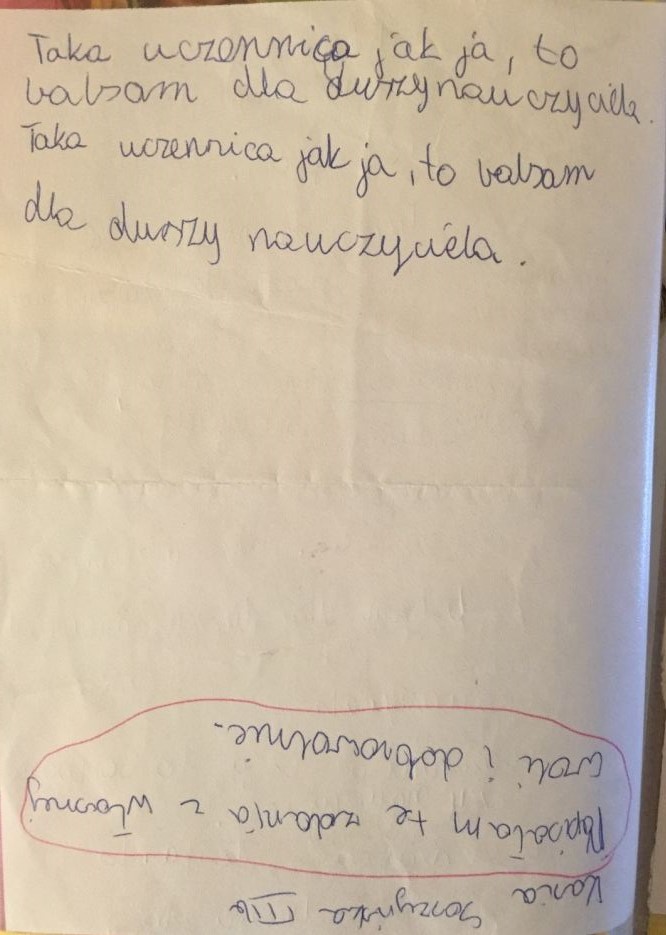 Taka uczennica jak ja, to
balsam dla durzy nauczyciela.
Taka uczennica jak ja, to balsam
dla durzy nauczyciela.
Kasia
Gorzyńska III b
Napisałam te zdania z własnej
woli i dobrowolnie.